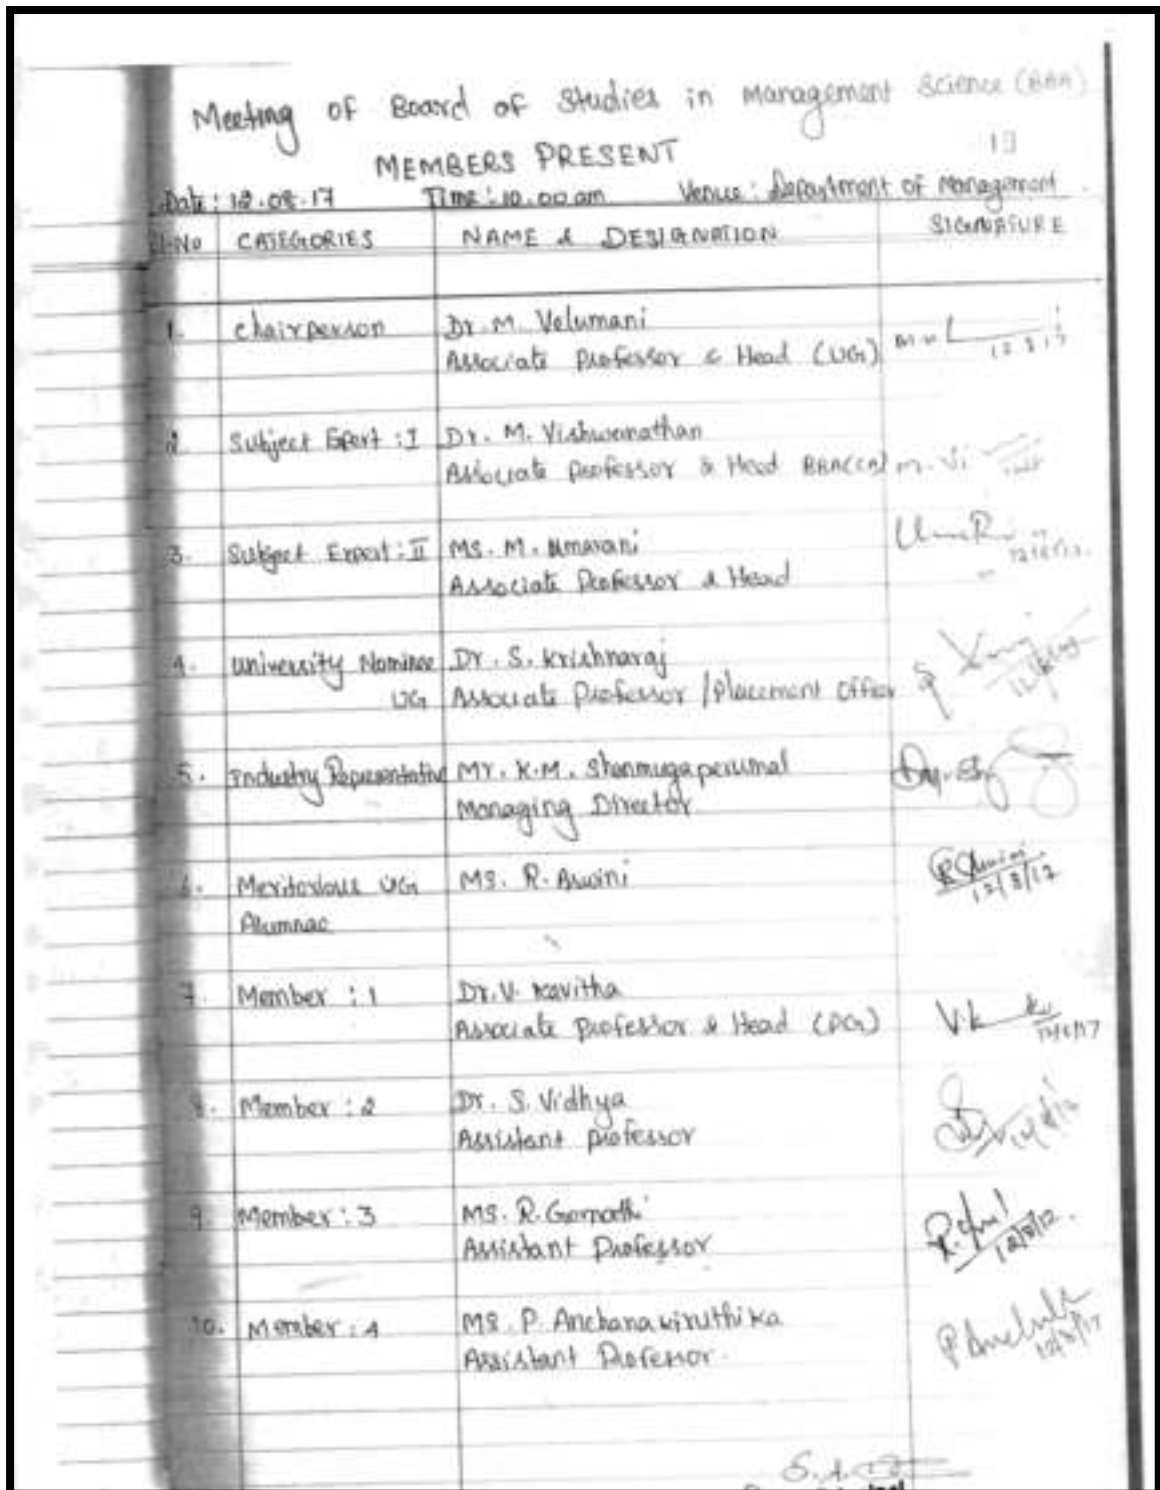 Meeting of Board of Studies in Management Science (BBA)
19
MEMBERS PRESENT
Date: 12.08.17 Time: 10.00 am Venue: Department of Management
Sl.No CATEGORIES NAME & DESIGNATION SIGNATURE
1. Chairperson Dr. M. Velumani
Associate Professor & Head (UG) 12 8 17
2. Subject Epert : I Dr. M. Vishwanathan
Associate Professor & Head BBA(CA) M. Vi
3. Subject Expert : II Ms. M. Umarani
Associate Professor & Head
4. University Nominee Dr. S. Krishnaraj
UG Associate Professor / Placement Officer
5. Industry Representative Mr. K.M. Shanmugaperumal
Managing Director
6. Meritorious UG Ms. R. Aswini
Alumnae 12/8/17
7. Member : 1 Dr. V. Kavitha
Associate Professor & Head (PG) V.K 12/8/17
8. Member : 2 Dr. S. Vidhya
Assistant Professor
9. Member : 3 Ms. R. Gomathi
Assistant Professor 12/8/17
10. Member : 4 Ms. P. Anchanakiruthika
Assistant Professor 12/8/17